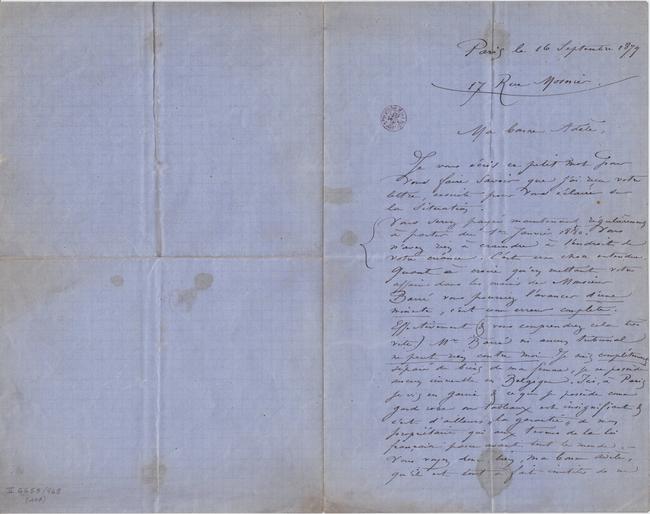 Paris le 16 Septembre 1879
17 Rue Mosnier.
Ma bonne Adèle,
Je vous écris ce petit mot pour
vous faire savoir que j'ai reçu votre
lettre, ensuite pour vous éclairer sur
la Situation.
Vous serez payée maintenant régulièrement
à partir du 1er Janvier 1880. Vous
n'avez rien à craindre à l'endroit de
votre créance. C'est une chose entendue.
Quant à croire qu'en mettant votre
affaire dans les mains de Monsieur
Barré vous pourriez l'avancer d'une
minute, c'est une erreur complète.
Effectivement (& vous comprendrez cela très
vite) Mr Barré ni aucun tribunal
ne peut rien contre moi. Je suis complètement
séparé de biens de ma femme, je ne possède
aucun immeuble en Belgique. Ici, à Paris
je vis en garni & ce que je possède comme
garde robe ou tableaux est insignifiant &
c'est d'ailleurs la garantie de mon
propriétaire qui aux termes de la loi
française passe avant tout le monde. —
Vous voyez donc bien, ma bonne Adèle,
qu'il est tout à fait inutile de me
II 6655/468